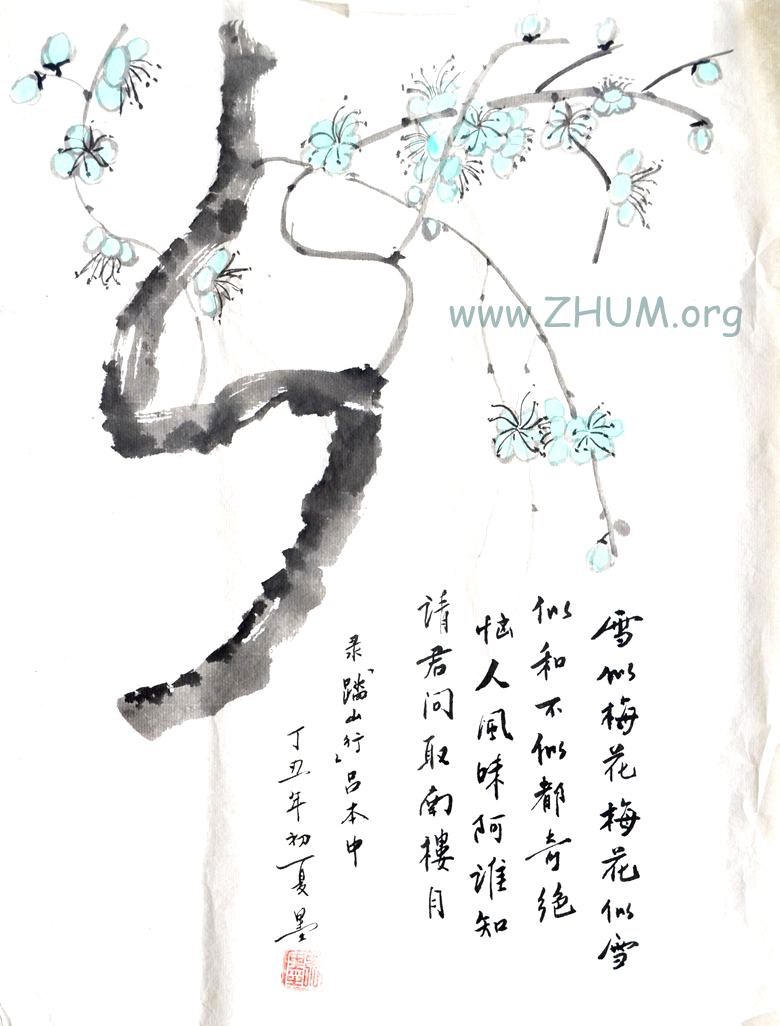 www.ZHUM.org
雪似梅花梅花似雪
似和不似都奇绝
恼人风味阿谁知
请君问取南楼月
录“踏山行”吕本中
丁丑年初夏墨